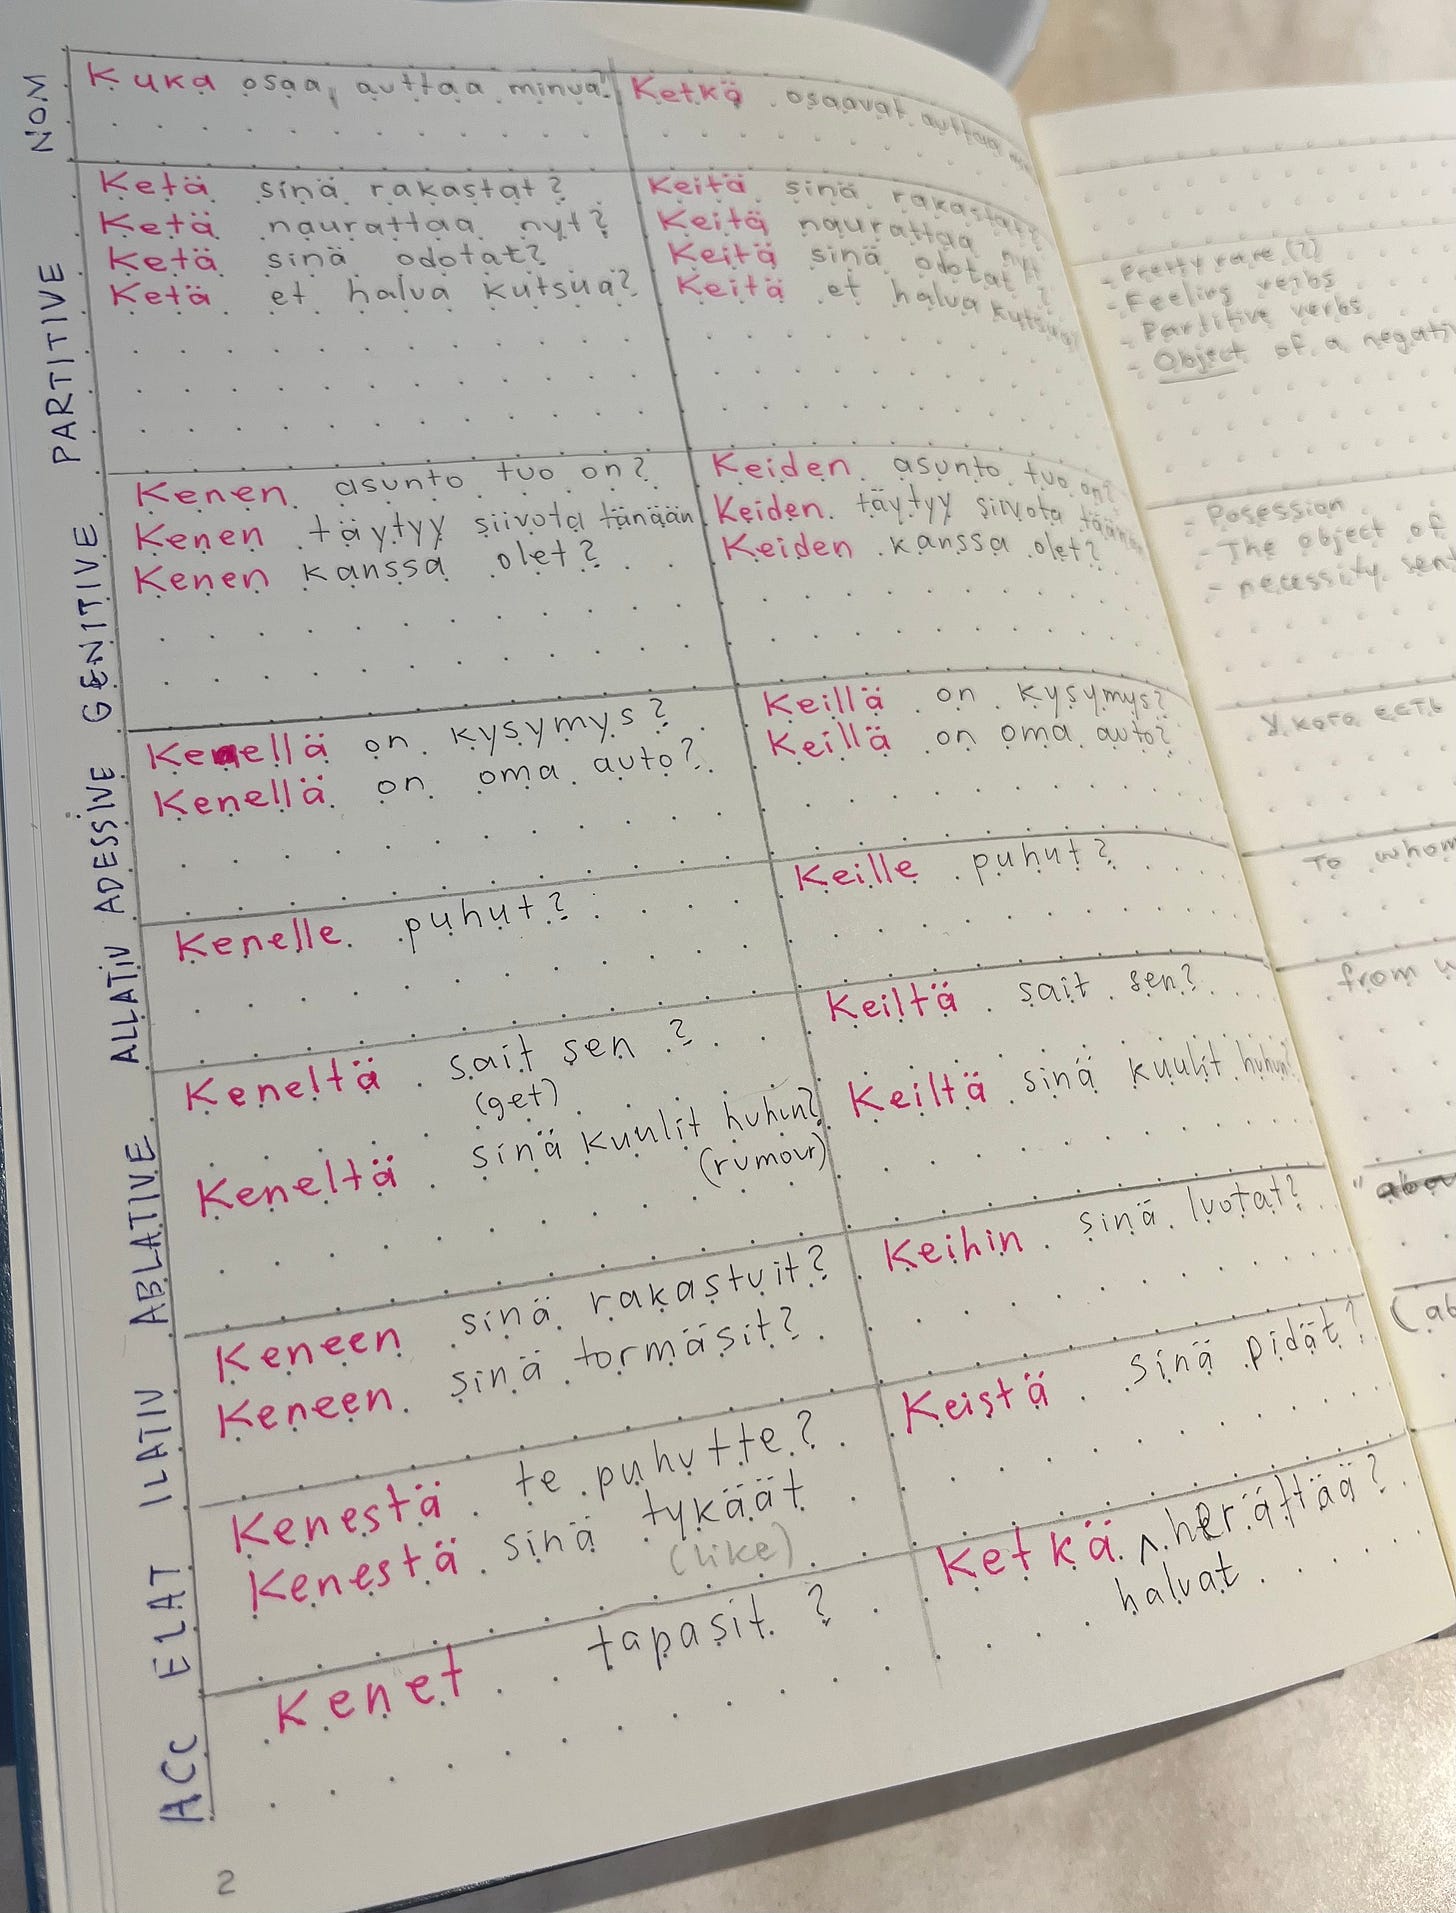 NOM
Kuka osaa auttaa minua?
Ketkä osaavat auttaa
PARTITIVE
Ketä sinä rakastat?
Ketä naurattaa nyt?
Ketä sinä odotat?
Ketä et halua kutsua?
Keitä sinä rakastat?
Keitä naurattaa nyt
Keitä sinä odotat?
Keitä et halua kutsua?
GENITIVE
Kenen asunto tuo on?
Kenen täytyy siivota tänään
Kenen kanssa olet?
Keiden asunto tuo on?
Keiden täytyy siivota tänään
Keiden kanssa olet?
ADESSIVE
Kenellä on kysymys?
Kenellä on oma auto?
Keillä on kysymys?
Keillä on oma auto?
ALLATIV
Kenelle puhut?
Keille puhut?
ABLATIVE
Keneltä sait sen?
(get)
Keneltä sinä kuulit huhun?
(rumour)
Keiltä sait sen?
Keiltä sinä kuulit huhun?
ILATIV
Keneen sinä rakastuit?
Keneen sinä tormäsit?
Keihin sinä luotat?
ELAT
Kenestä te puhutte?
Kenestä sinä tykäät
(like)
Keistä sinä pidät?
ACC
Kenet tapasit?
Ketkä ^ herättää?
haluat
2
- Pretty rare (?)
- Feeling verbs
- Partitive verbs
- Object of a negati
- Posession
- The object of
- necessity sent
У кого есть
To whom
from w
(ab